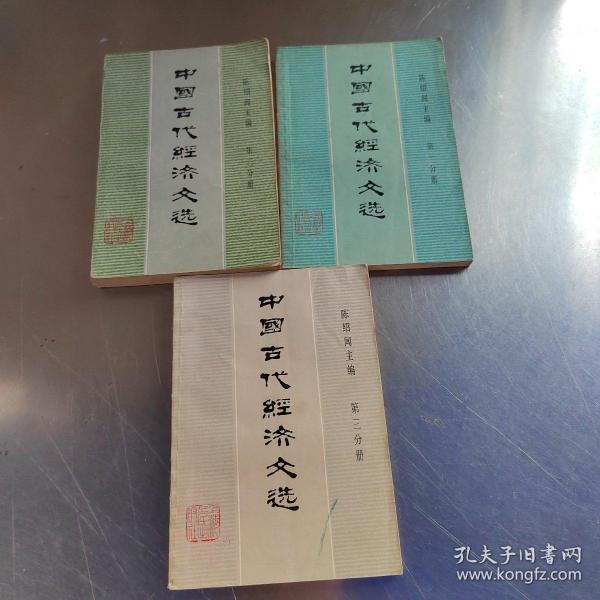 中國古代經济文选
陈绍闻主编 第二分册
中國古代經济文选
陈绍闻主编 第一分册
中國古代經济文选
陈绍闻主编 第三分册
孔夫子旧书网
www.kongfz.com